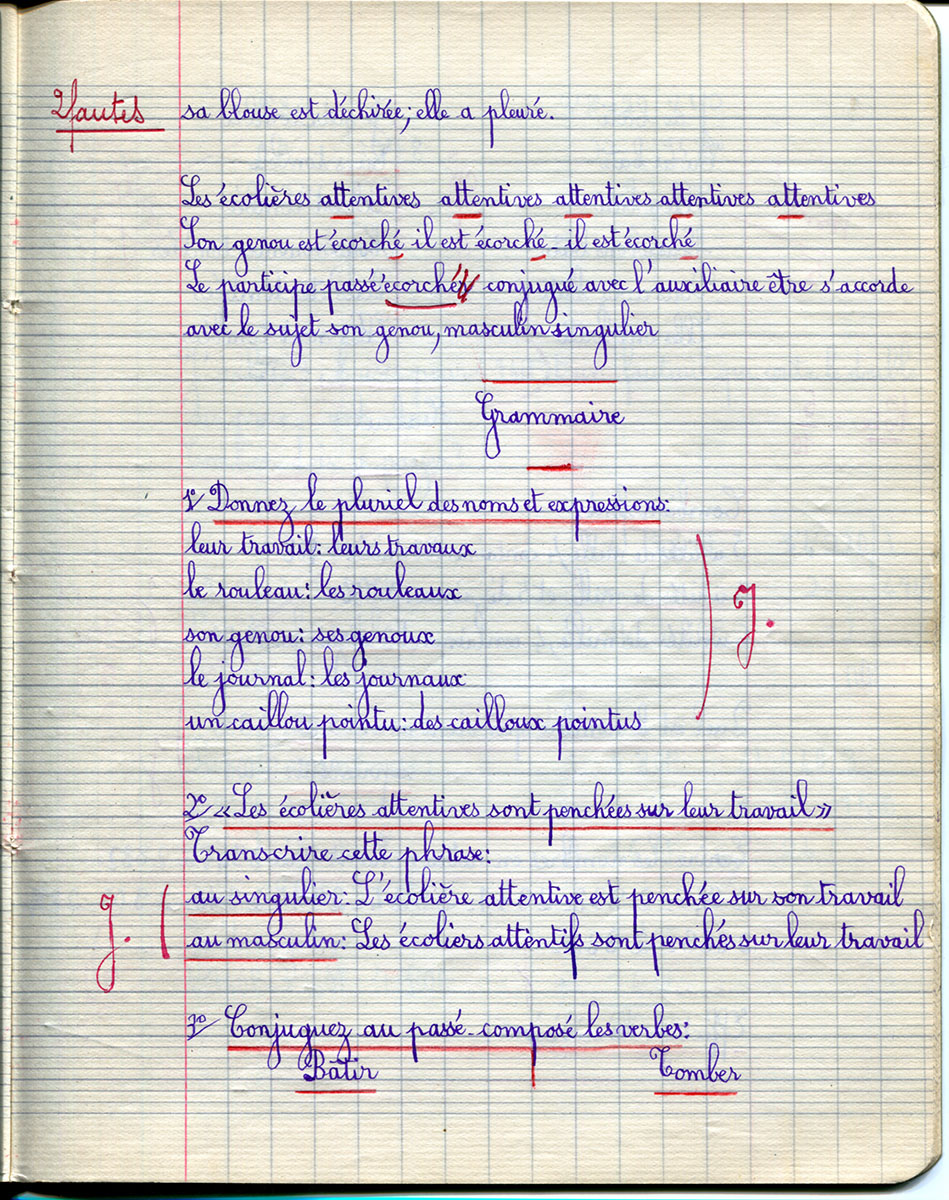 2 fautes sa blouse est déchirée; elle a pleuré.
Les écolières attentives attentives attentives attentives attentives
Son genou est écorché il est écorché - il est écorché
Le participe passé écorché conjugué avec l'auxiliaire être s'accorde
avec le sujet son genou, masculin singulier
Grammaire
1º Donnez le pluriel des noms et expressions:
leur travail: leurs travaux
le rouleau: les rouleaux
J.
son genou: ses genoux
le journal: les journaux
un caillou pointu: des cailloux pointus
2º «Les écolières attentives sont penchées sur leur travail»
Transcrire cette phrase:
au singulier: L'écolière attentive est penchée sur son travail
J.
au masculin: Les écoliers attentifs sont penchés sur leur travail
3º Conjuguez au passé-composé les verbes:
Bâtir Tomber